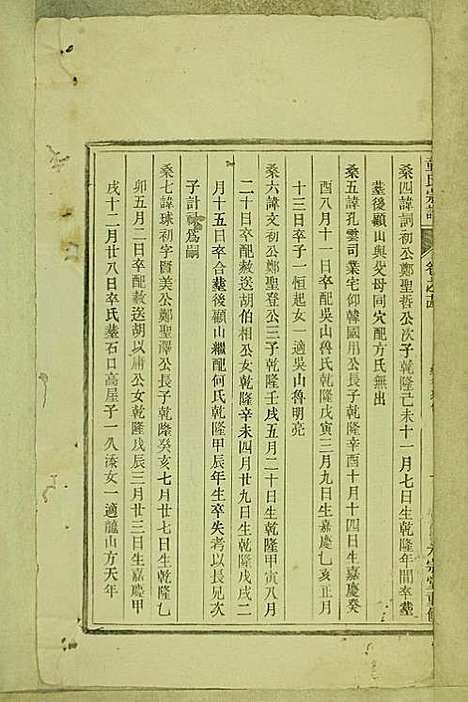 桑四諱詞初公鄭聖哲公次子乾隆己未十一月七日生乾隆年間卒塟
塟後顧山與父母同穴配方氏無出
桑五諱孔雲司業宅仰韓國用公長子乾隆辛酉十月十四日生嘉慶癸
酉八月十一日卒配吳山魯氏乾隆戊寅三月九日生嘉慶乙亥正月
十三日卒子一恒起女一適吳山魯明亮
桑六諱文初公鄭聖登公三子乾隆壬戌五月二十日生乾隆甲寅八月
二十日卒配赦送胡伯相公女乾隆辛未四月廿九日生乾隆戊戌二
月十五日卒合塟後顧山繼配何氏乾隆甲辰年生卒失考以長兄次
子計爲嗣
桑七諱球初字賢美公鄭聖澤公長子乾隆癸亥七月廿七日生乾隆乙
卯五月二日卒配赦送胡以肅公女乾隆戊辰三月廿三日生嘉慶甲
戌十二月廿八日卒氏塟石口高屋子一久湊女一適龍山方天年